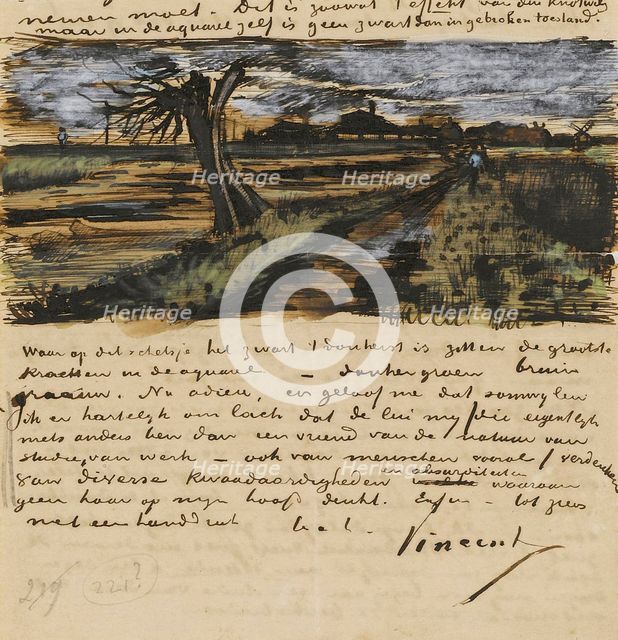 nemen moet. Dit is zoowat 't effekt van den knotwilg
maar in de aquarel zelf is geen zwart dan in gebroken toestand.
Heritage Heritage
Heritage Heritage
Waar op dit schetsje het zwart 't donkerst is zitten de grootste
krachten in de aquarel – donkergroen bruin
graauw. Nu adieu, en geloof me dat somwylen
ik er hartelyk om lach dat de lui my /die eigentlyk
niets anders ben dan een vriend van de natuur van
studie, van werk – ook van menschen vooral / verdenken
van diverse kwaadaardigheden en absurditeiten waaraan
geen haar op myn hoofd denkt. Enfin – tot ziens
met een handdruk t. à t.
Vincent
Heritage Heritage
219 221?